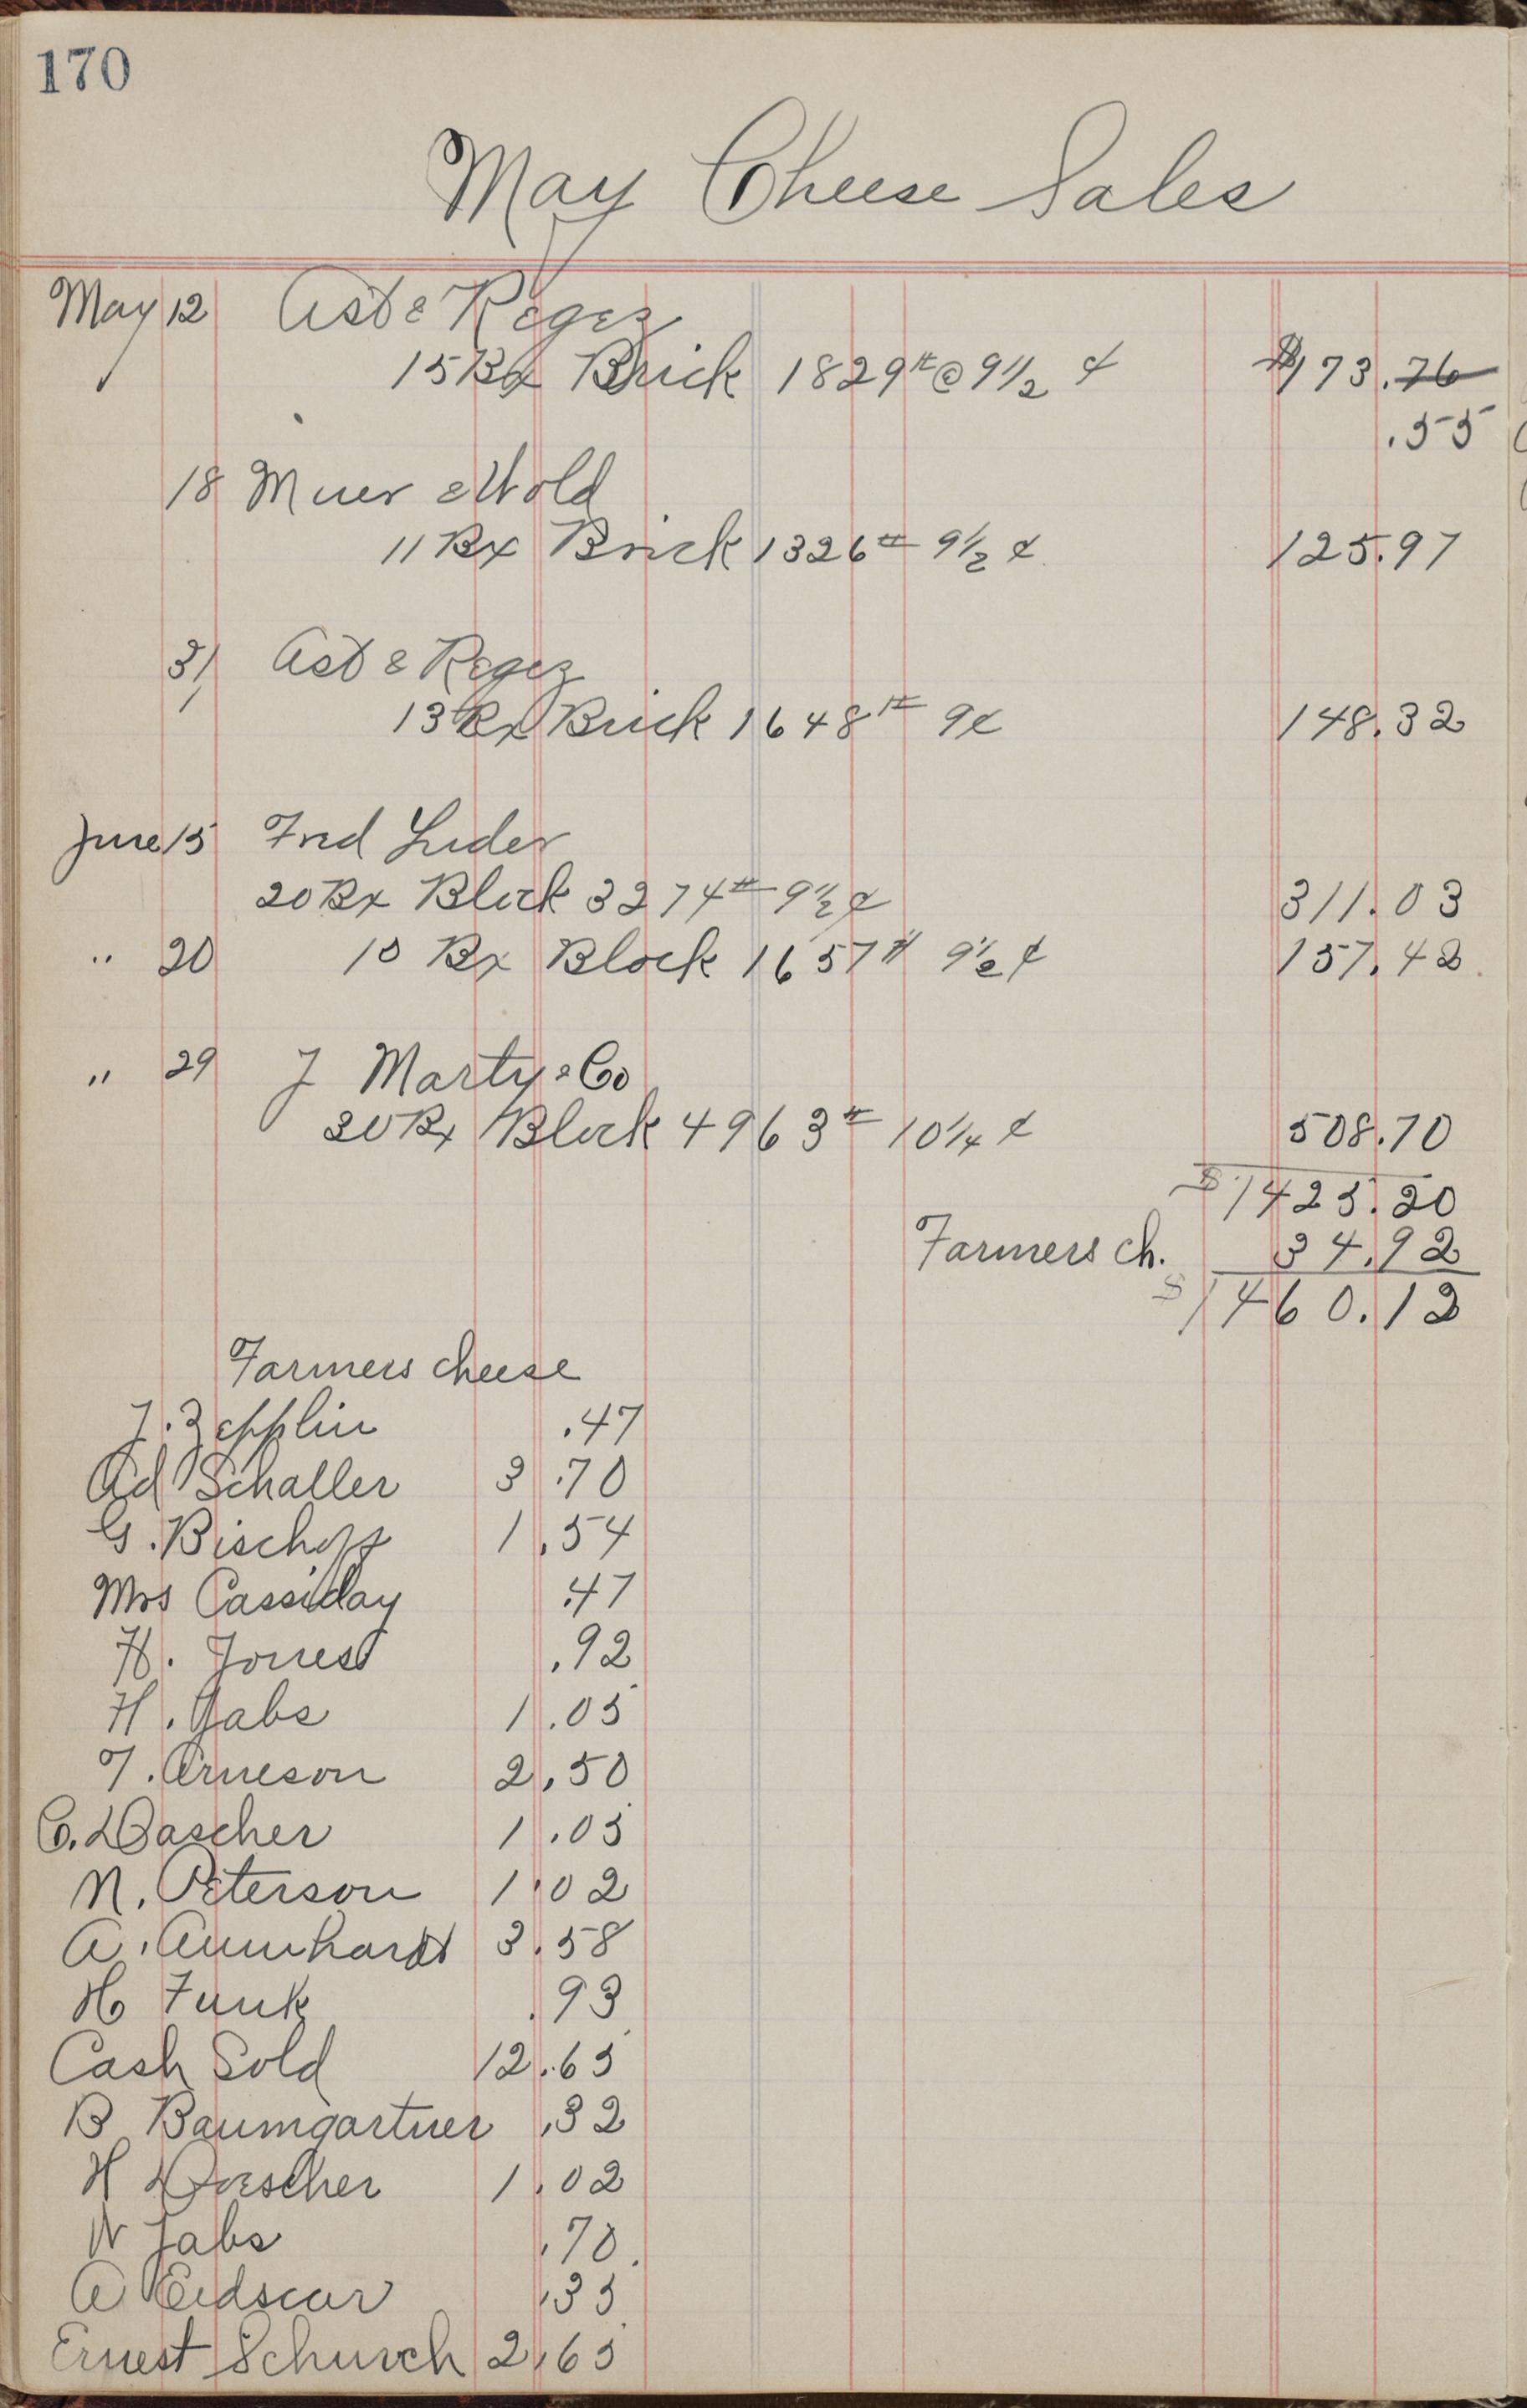 170
May Cheese Sales
May 12 Ast & Regez
15 Bx Brick 1829# @ 9 1/2 ¢ $173.76
.55
18 Muer & Wold
11 Bx Brick 1326# 9 1/2 ¢ 125.97
31 Ast & Regez
13 Bx Brick 1648# 9¢ 148.32
June 15 Fred Luder
20 Bx Block 3274# 9 1/2 ¢ 311.03
" 20 10 Bx Block 1657# 9 1/2 ¢ 157.42
" 29 J Marty & Co
30 Bx Block 4963# 10 1/4 ¢ 508.70
$1425.20
Farmers ch. 34.92
$1460.12
Farmers cheese
J. Zepplin .47
Ad Schaller 3.70
G. Bischoff 1.54
Mrs Cassiday .47
H. Jones .92
H. Jabs 1.05
T. Arneson 2.50
C. Dascher 1.05
N. Peterson 1.02
A. 3.58
H Funk .93
Cash Sold 12.65
B Baumgartner .32
H Doescher 1.02
W Jabs .70
A .35
Ernest Schurch 2.65